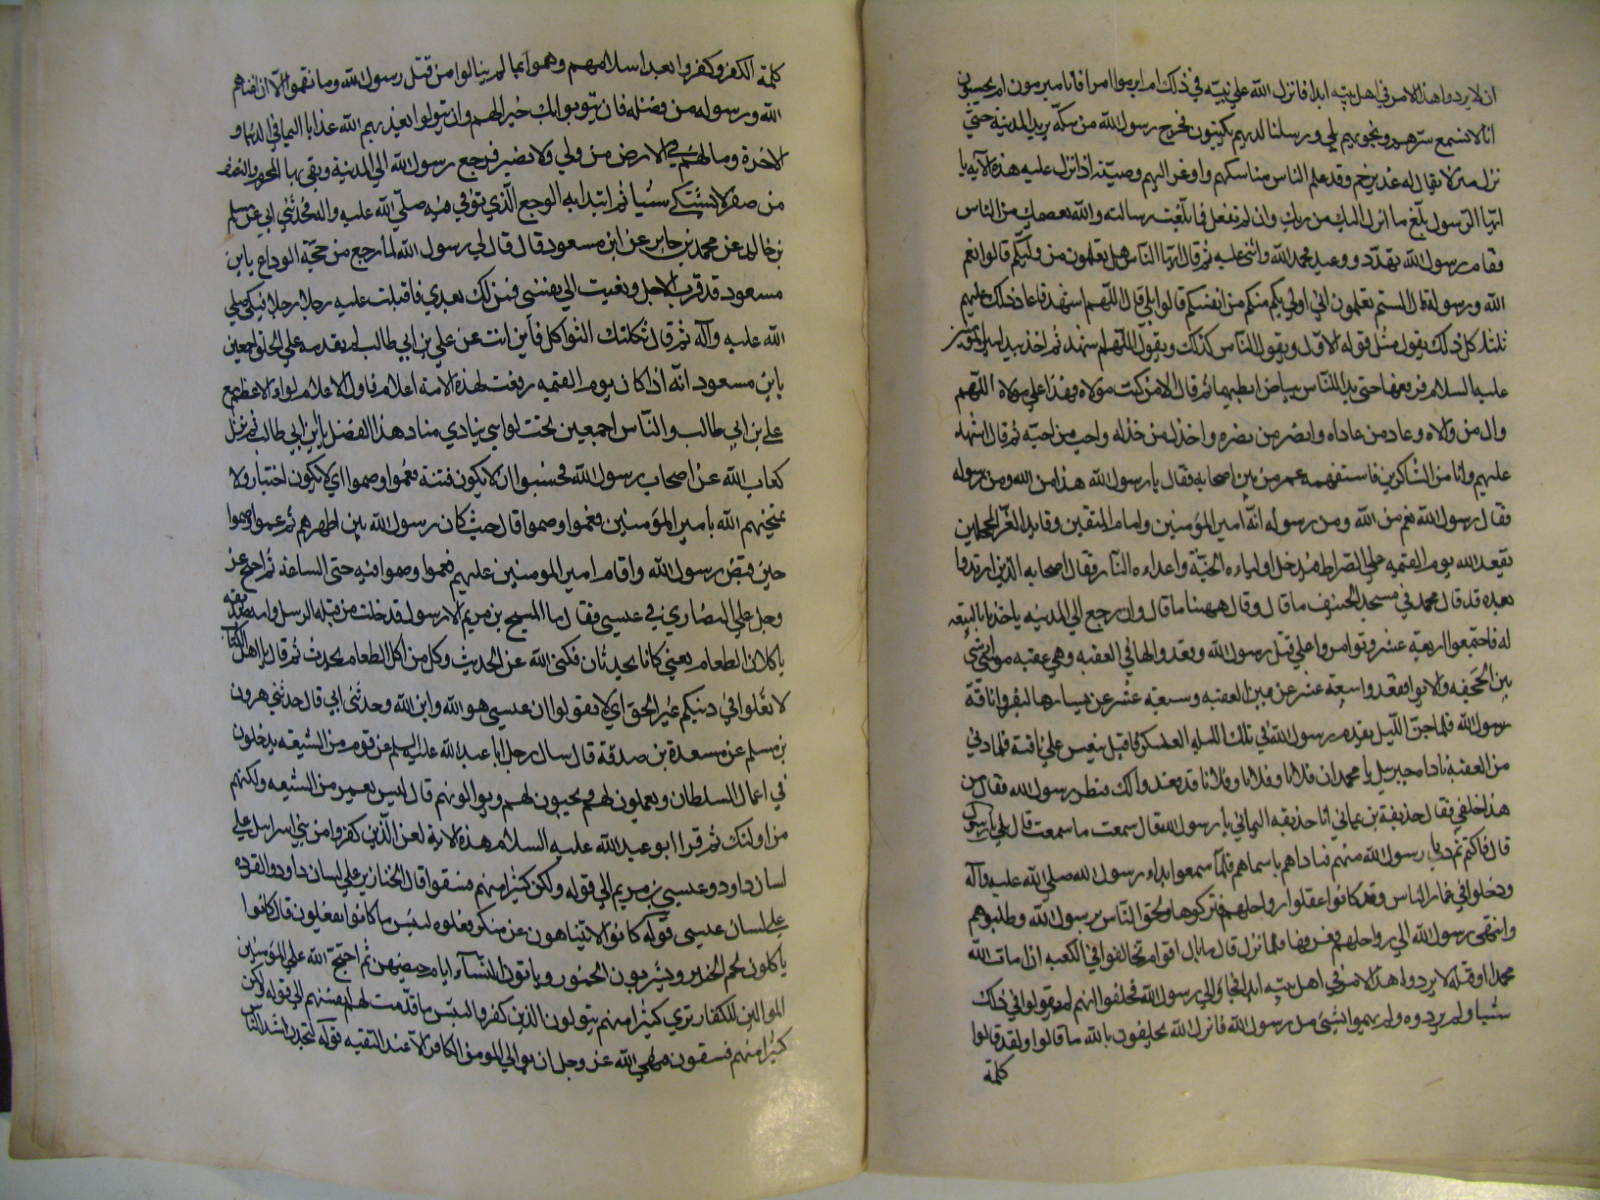 ان لا يردوا هذا الامر في اهل بيته ابدا فانزل الله علي نبيه في ذلك ام ابرموا امرا فانا مبرمون ام يحسبون
انا لا نسمع سرهم ونجويهم بلي ورسلنا لديهم يكتبون فخرج رسول الله من مكة يريد المدينة حتي
نزل منزلا يقال له غدير خم وقد علم الناس مناسكهم واوعز اليهم وصيته اذ انزل عليه هذه الآيه يا
ايها الرسول بلغ ما انزل اليك من ربك وان لم تفعل فما بلغت رسالته والله يعصمك من الناس
فقام رسول الله بتهدد ووعيد فحمد الله واثني عليه ثم قال ايها الناس هل تعلمون من وليكم قالوا نعم
الله ورسوله قال الستم تعلمون اني اولي بكم منكم من انفسكم قالوا بلي قال اللهم اشهد فاعاد ذلك عليهم
ثلثا كل ذلك يقول مثل قوله الاول ويقول الناس كذلك ويقول اللهم اشهد ثم اخذ بيد امير المؤمنين
عليه السلام فرفعها حتي بدا للناس بياض ابطيهما ثم قال الا من كنت مولاه فهذا علي مولاه اللهم
وال من والاه وعاد من عاداه وانصر من نصره واخذل من خذله واحب من احبه ثم قال اللهم اشهد
عليهم وانا من الشاكرين فاستفهمه عمر من بين اصحابه فقال يا رسول الله هذا من الله ومن رسوله
فقال رسول الله نعم من الله ومن رسوله انه امير المؤمنين وامام المتقين وقايد الغر المحجلين
يقعده الله يوم القيمه علي الصراط فيدخل اولياءه الجنة واعداءه النار فقال اصحابه الذين ارتدوا
بعده قد قال محمد في مسجد الخيف ما قال وقال ههنا ما قال وان رجع الي المدينه ياخذنا بالبيعه
له فاجتمعوا اربعة عشر وتوامروا علي قتل رسول الله وقعدوا لها في العقبه وهي عقبه
بين الجحفه والابوا فقعدوا سبعة عشر عن يمين العقبه وسبعة عشر عن يسارها لينفروا ناقة
رسول الله فلما جن الليل تقدم رسول الله في تلك الليله العسكر فاقبل ينعس علي ناقته فلما دني
من العقبة ناداه جبرئيل يا محمد ان فلانا وفلانا وفلانا قد قعدوا لك فنظر رسول الله فقال من
هذا خلفي فقال حذيفة بن يماني انا حذيفه اليماني يا رسول الله قال سمعت ما سمعت قال بلي يا رسول
قال فاكتم ثم دنا رسول الله منهم فناداهم باسماهم فلما سمعوا نداء رسول الله صلي الله عليه وآله
ودخلوا في غمار الناس وقد كانوا عقلوا رواحلهم فتركوها ولحق الناس برسول الله وطلبوهم
وانتهي رسول الله الي رواحلهم فعرفها فلما نزل قال ما بال اقوام تحالفوا في الكعبه ان مات الله
محمدا او قتله لا يردوا هذا الامر في اهل بيته ابدا فجاؤ الي رسول الله فحلفوا انهم لم يقولوا في ذلك
شيئا ولم يريدوه ولم يهموا بشئ من رسول الله فانزل الله يحلفون بالله ما قالوا ولقد قالوا
كلمة
كلمة الكفر وكفروا بعد اسلامهم وهموا بما لم ينالوا من قتل رسول الله وما نقموا الا ان اغناهم
الله ورسوله من فضله فان يتوبوا يك خيرا لهم وان يتولوا يعذبهم الله عذابا اليما في الدنيا و
الاخرة وما لهم في الارض من ولي ولا نصير فرجع رسول الله الي المدينة وبقي بها المحرم والنصف
من صفر لا يشتكي شيئا ثم ابتدا به الوجع الذي توفي فيه صلي الله عليه وآله فحدثني ابي عن مسلم
بن خالد عن محمد بن جابر عن ابن مسعود قال قال لي رسول الله لما رجع من حجة الوداع يابن
مسعود قد قرب الاجل ونعيت الي نفسي فمن لك بعدي فاقبلت عليه رجلا رجلا فبكي صلي
الله عليه وآله ثم قال ثكلتك الثواكل فاين انت عن علي بن ابي طالب لم يقدمه علي الخلق اجمعين
يابن مسعود انه اذا كان يوم القيمه رفعت لهذه الامة اعلام فاول الاعلام لوائي الاعظم مع
علي بن ابي طالب والناس اجمعين تحت لوائي ينادي مناد هذا الفضل يابن ابي طالب ثم نزل
كتاب الله عن اصحاب رسول الله فحسبوا ان لا يكون فتنة فعموا وصموا اي لا يكون اختبار ولا
يمتحنهم الله بامير المؤمنين فعموا وصموا قال حيث كان رسول الله بين اظهرهم ثم عموا وصموا
حين قبض رسول الله واقام امير المومنين عليهم فعموا وصموا فيه حتي الساعة ثم احتج عز
وجل علي النصاري في عيسي فقال ما المسيح بن مريم الا رسول قد خلت من قبله الرسل وامه صديقه
ياكلان الطعام يعني كانا يحدثان فكني الله عن الحدث وكل من اكل الطعام يحدث ثم قال يا اهل الكتاب
لا تغلوا في دينكم غير الحق اي لا تقولوا ان عيسي هو الله وابن الله وحدثني ابي قال حدثني هرون
بن مسلم عن مسعدة بن صدقة قال سال رجل ابا عبد الله عليه السلام عن قوم من الشيعه يدخلون
في اعمال السلطان ويعملون لهم ويحبون لهم ويوالونهم قال ليس هم من الشيعه ولكنهم
من اولئك ثم قرا ابو عبد الله عليه السلام هذه الاية لعن الذين كفروا من بني اسرايل علي
لسان داود وعيسي بن مريم الي قوله ولكن كثيرا منهم فسقوا قال الخنازير علي لسان داود والقرده
علي لسان عيسي قوله كانوا لا يتناهون عن منكر فعلوه لبئس ما كانوا يفعلون قال كانوا
ياكلون لحم الخنزير ويشربون الخمور وياتون النسآء ايام حيضهن ثم احتج الله علي المؤمنين
الموالين للكفار تري كثيرا منهم يتولون الذين كفروا لبئس ما قدمت لهم انفسهم الي قوله ولكن
كثيرا منهم فسقون فنهي الله عز وجل ان يوالي المومن الكافر الا عند التقيه قوله لتجدن اشد الناس